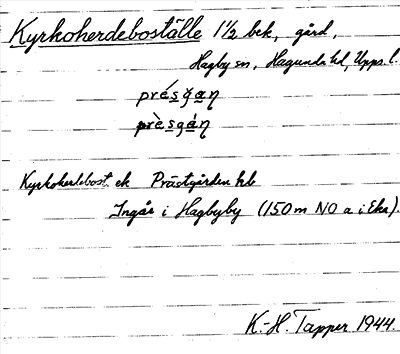 Kyrkoherdeboställe 1 1/2 bek, gård,
Hagby sn, Hagunda hd, Upps. l.
pré̱sga̱ŋ
prè̱sgá̱ŋ
Kyrkoherdebost. ek Prästgården hb
Ingår i Hagbyby (150 m NO a i Eke).
K.-H. Tapper 1944.